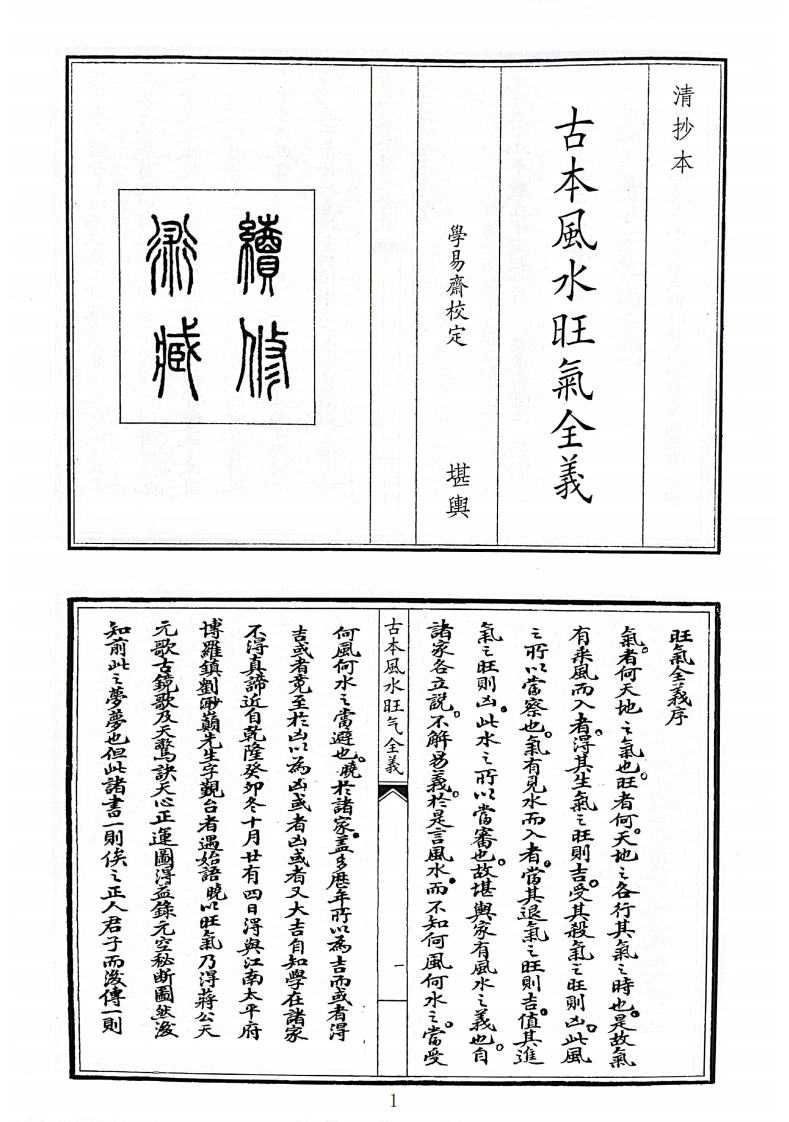 清抄本
古本風水旺氣全義
學易齋校定 堪輿
續修
術藏
旺氣全義序
氣者何天地之氣也旺者何天地之各行其氣之時也是故氣
有乘風而入者得其生氣之旺則吉受其殺氣之旺則凶此風
之所以當察也氣有見水而入者當其退氣之旺則吉值其進
氣之旺則凶此水之所以當審也故堪輿家有風水之義也自
諸家各立說不解易義於是言風水而不知何風何水之當受
古本風水旺气全義
一
何風何水之當避也曉於諸家蓋多歷年所以為吉而或者得
吉或者竟至於凶以為凶或者凶或者又大吉自知學在諸家
不得真諦近自乾隆癸卯冬十月廿有四日得與江南太平府
博羅鎮劉巔先生字觀台者遇始語曉以旺氣乃得蔣公天
元歌古鏡歌及天驚訣天心正運圖得益錄元空秘斷圖然後
知前此之夢夢也但此諸書一則俟之正人君子而後傳一則
1